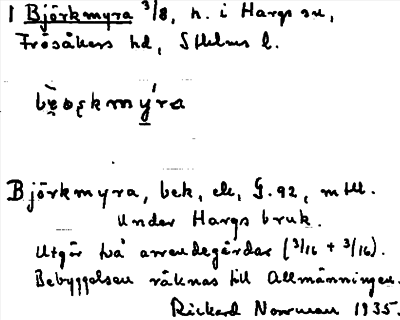 1 Björkmyra 3/8, h. i Hargs sn,
Frösåkers hd, Sthlms l.
Björkmyra, bek, ek, G. 92, mtl.
Under Hargs bruk.
Utgår två arrendegårdar (3/16 + 3/16).
Bebyggelsen räknas till Allmänningen.
Rickard Norrman 1935.